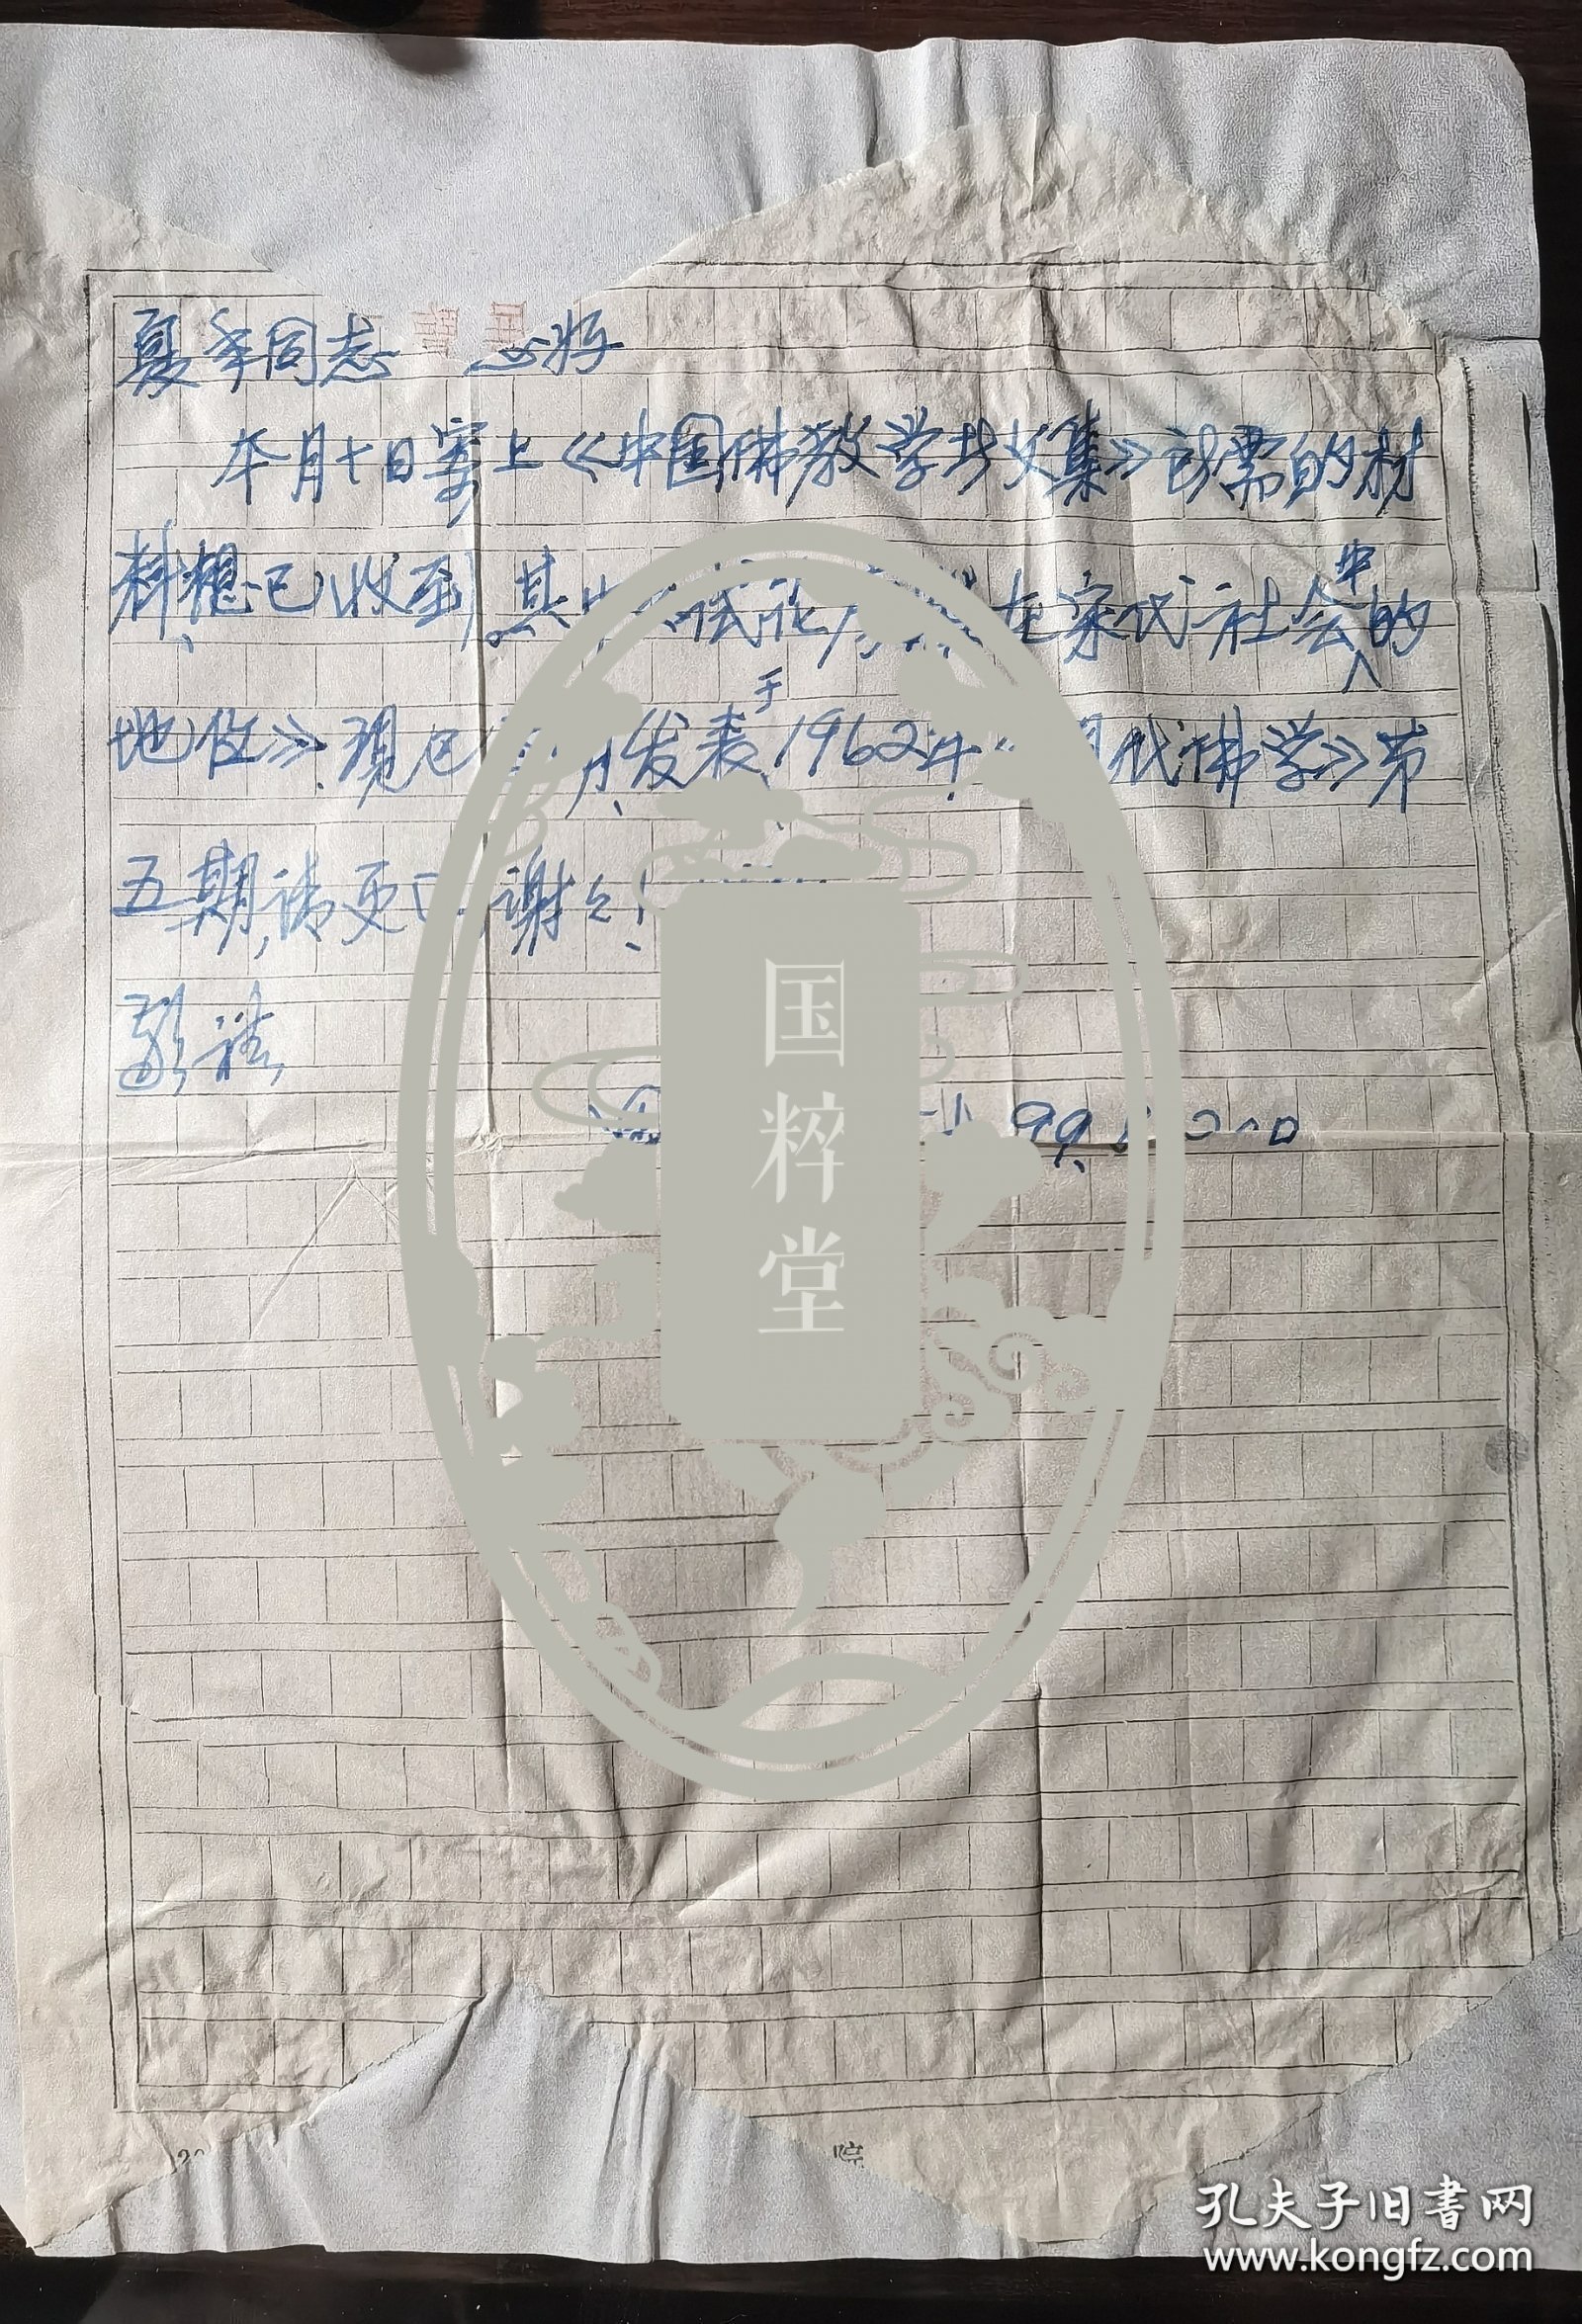 夏年同志 您好
本月十日寄上《中国佛教学术文集》所需的材
料，想已收到。其中 试论 在宋代社会中的
地位》。现已 发表于1962年《现代佛学》第
五期，请更 谢々！
敬礼
99.
国粹堂
院
孔夫子旧书网
www.kongfz.com